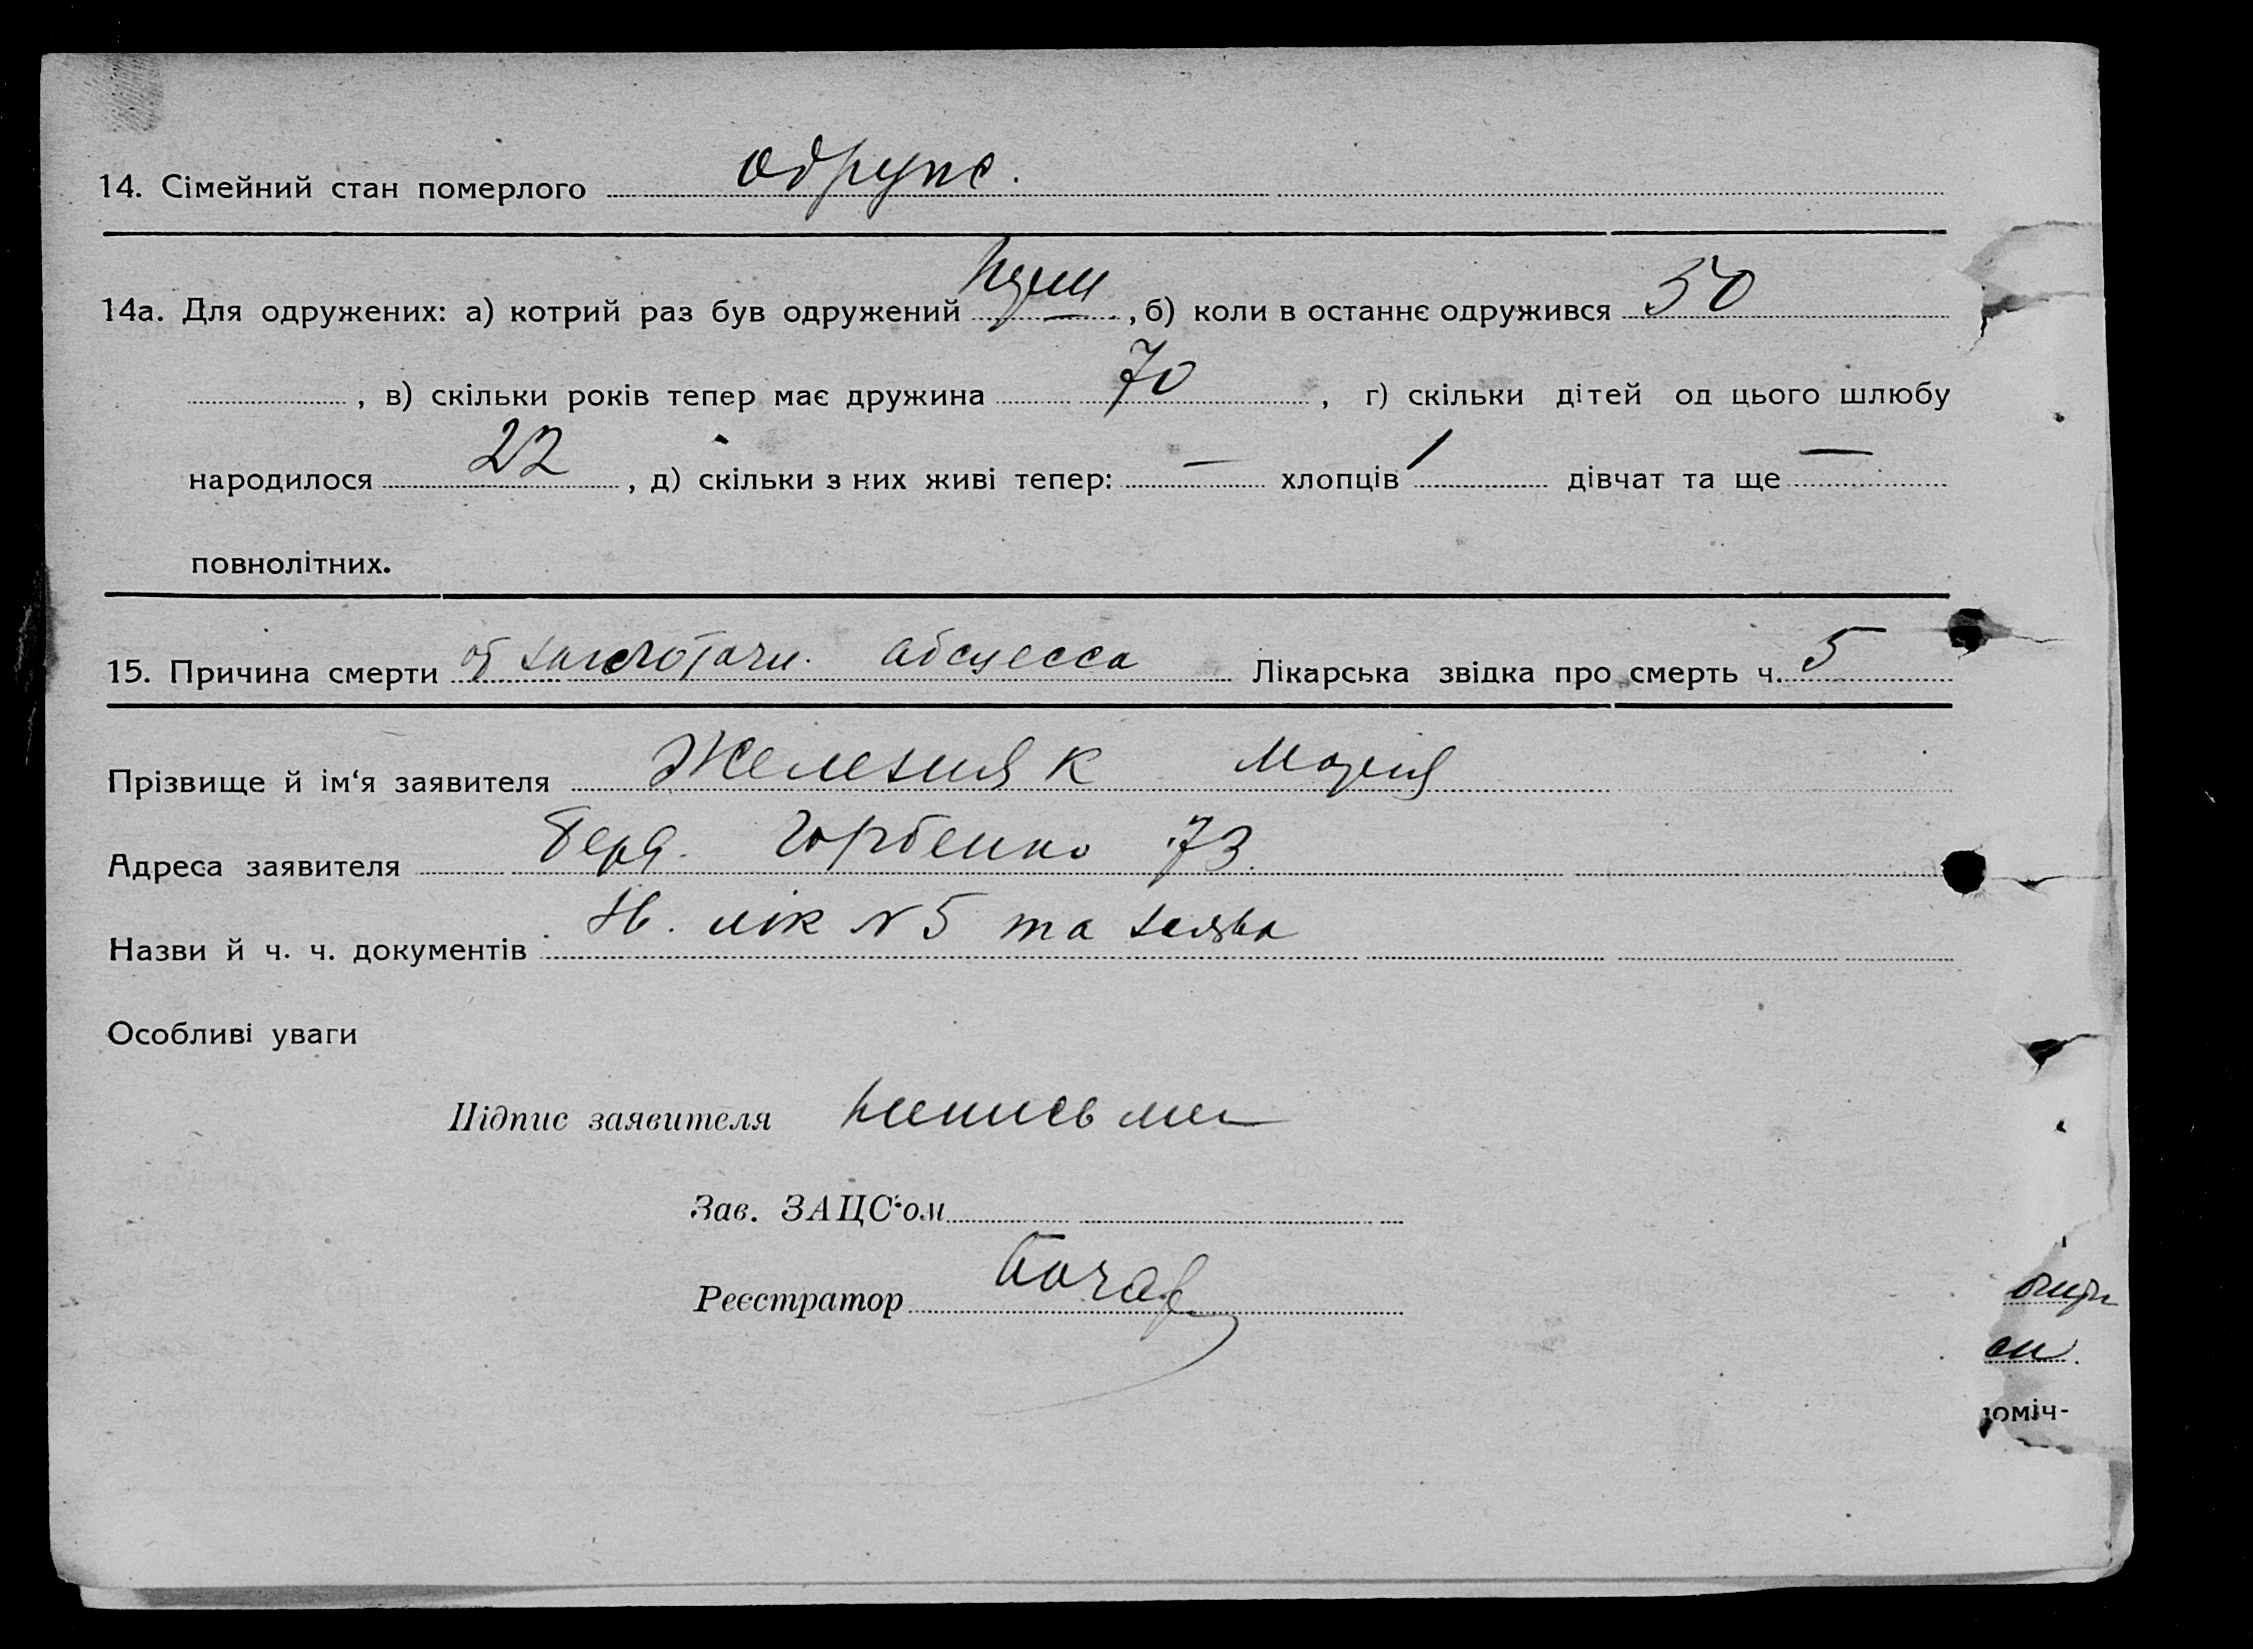 14. Сімейний стан померлого одруж.
14а. Для одружених: а) котрий раз був одружений перш , б) коли в останнє одружився 50
, в) скільки років тепер має дружина 70 , г) скільки дітей од цього шлюбу
народилося 22 , д) скільки з них живі тепер: — хлопців 1 дівчат та ще —
повнолітних.
15. Причина смерти от абсцесса Лікарська звідка про смерть ч. 5
Прізвище й ім‘я заявителя Железняк Мария
Адреса заявителя Горбенко 73.
Назви й ч. ч. документів лік N 5 та заява
Особливі уваги
Підпис заявителя неписьмен
Зав. ЗАЦС‘ом
Реєстратор
юміч-